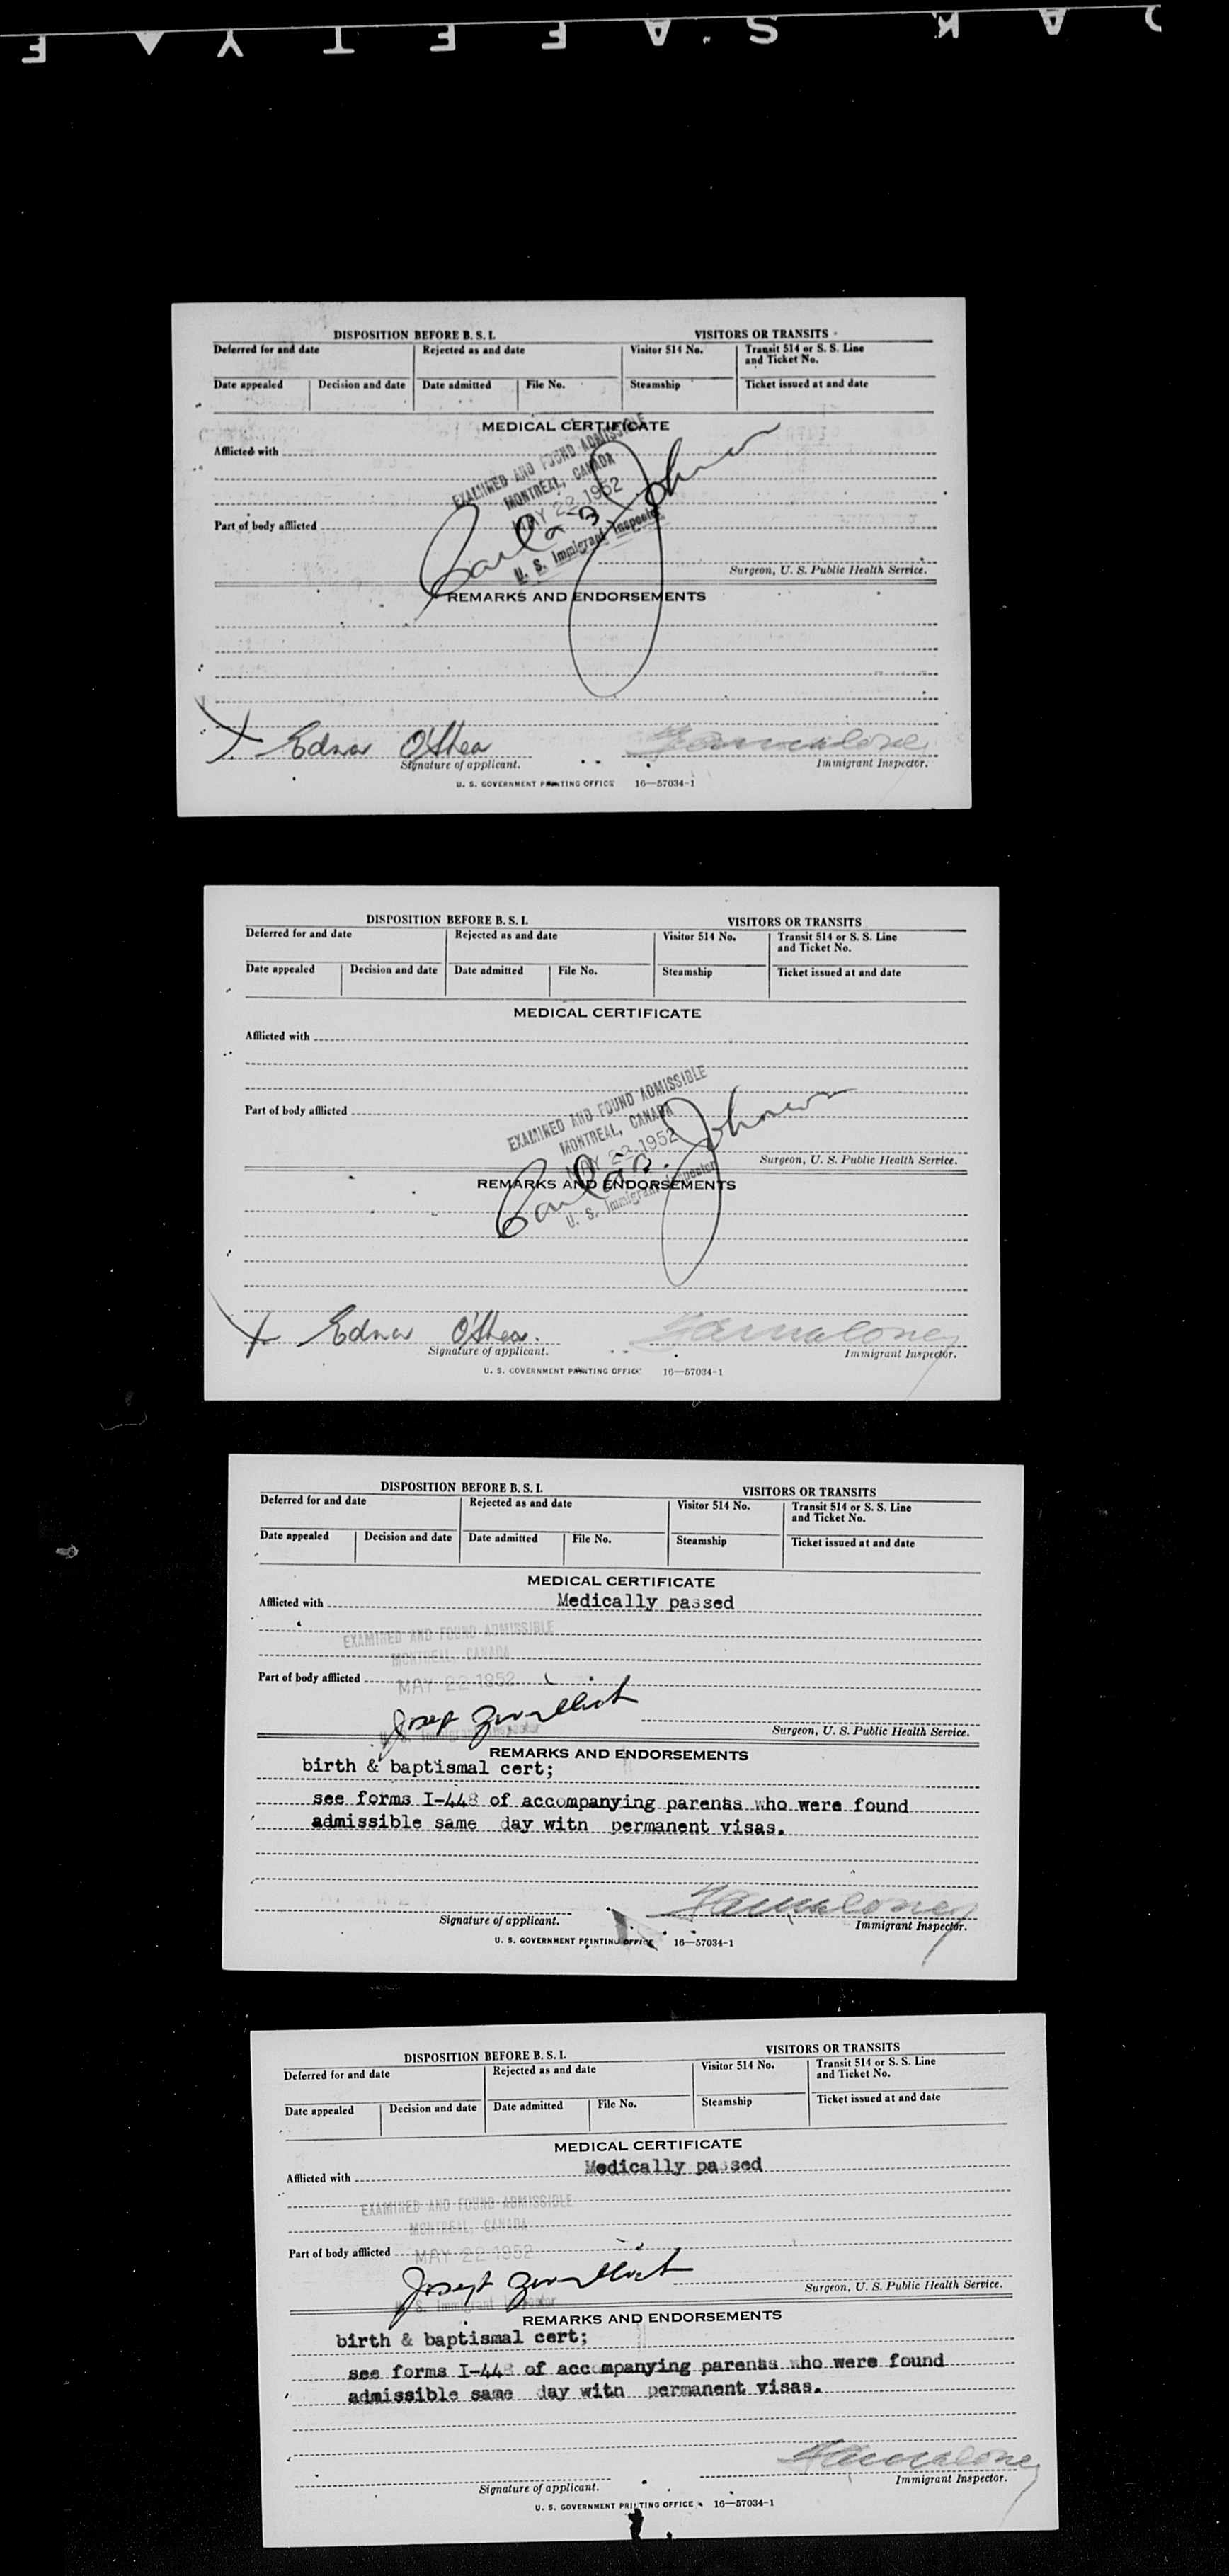 DISPOSITION BEFORE B. S. I.
VISITORS OR TRANSITS
Deferred for and date
Rejected as and date
Visitor 514 No.
Transit 514 or S. S. Line
and Ticket No.
Date appealed
Decision and date
Date admitted
File No.
Steamship
Ticket issued at and date
MEDICAL CERTIFICATE
Afflicted with
EXAMINED AND FOUND ADMISSIBLE
MONTREAL, CANADA
MAY 22 1952
Part of body afflicted
U. S. Immigrant Inspector
Surgeon, U. S. Public Health Service.
REMARKS AND ENDORSEMENTS
X Edna O'Shea
Signature of applicant.
Immigrant Inspector.
U. S. GOVERNMENT PRINTING OFFICE 16—57034-1
DISPOSITION BEFORE B. S. I.
VISITORS OR TRANSITS
Deferred for and date
Rejected as and date
Visitor 514 No.
Transit 514 or S. S. Line
and Ticket No.
Date appealed
Decision and date
Date admitted
File No.
Steamship
Ticket issued at and date
MEDICAL CERTIFICATE
Afflicted with
EXAMINED AND FOUND ADMISSIBLE
MONTREAL, CANADA
Part of body afflicted
MAY 22 1952
Surgeon, U. S. Public Health Service.
REMARKS AND ENDORSEMENTS
U. S. Immigrant Inspector
X Edna O'Shea.
Signature of applicant.
Immigrant Inspector.
U. S. GOVERNMENT PRINTING OFFICE 16—57034-1
DISPOSITION BEFORE B. S. I.
VISITORS OR TRANSITS
Deferred for and date
Rejected as and date
Visitor 514 No.
Transit 514 or S. S. Line
and Ticket No.
Date appealed
Decision and date
Date admitted
File No.
Steamship
Ticket issued at and date
MEDICAL CERTIFICATE
Afflicted with Medically passed
EXAMINED AND FOUND ADMISSIBLE
MONTREAL, CANADA
Part of body afflicted
MAY 22 1952
Joseph
U. S. Immigrant Inspector
Surgeon, U. S. Public Health Service.
REMARKS AND ENDORSEMENTS
birth & baptismal cert;
see forms I-448 of accompanying parents who were found
admissible same day witn permanent visas.
Signature of applicant.
Immigrant Inspector.
U. S. GOVERNMENT PRINTING OFFICE 16—57034-1
DISPOSITION BEFORE B. S. I.
VISITORS OR TRANSITS
Deferred for and date
Rejected as and date
Visitor 514 No.
Transit 514 or S. S. Line
and Ticket No.
Date appealed
Decision and date
Date admitted
File No.
Steamship
Ticket issued at and date
MEDICAL CERTIFICATE
Afflicted with Medically passed
EXAMINED AND FOUND ADMISSIBLE
MONTREAL, CANADA
Part of body afflicted
MAY 22 1952
Joseph
U. S. Immigrant Inspector
Surgeon, U. S. Public Health Service.
REMARKS AND ENDORSEMENTS
birth & baptismal cert;
see forms I-448 of accompanying parents who were found
admissible same day witn permanent visas.
Signature of applicant.
Immigrant Inspector.
U. S. GOVERNMENT PRINTING OFFICE 16—57034-1